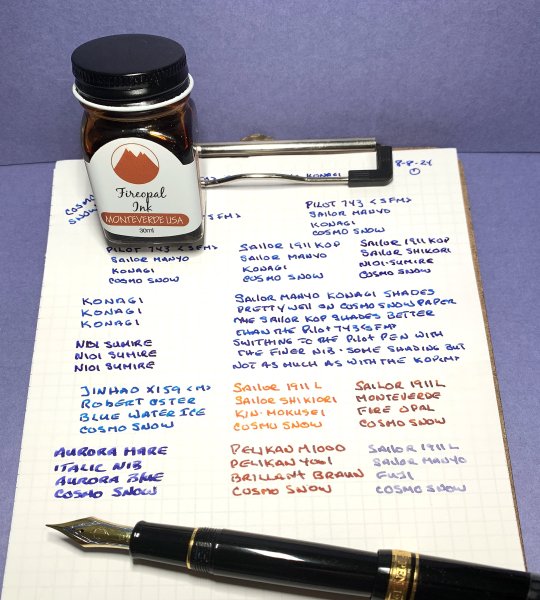 Fireopal
Ink
MONTEVERDE USA
30ml
8-8-24
KONAGI
COSMO
SNOW
<SFM>
PILOT 743 <SFM>
SAILOR MANYO
KONAGI
COSMO SNOW
PILOT 743 <SFM>
SAILOR MANYO
KONAGI
COSMO SNOW
SAILOR 1911 KOP
SAILOR MANYO
KONAGI
COSMO SNOW
SAILOR 1911 KOP
SAILOR SHIKORI
NIOI-SUMIRE
COSMO SNOW
KONAGI
KONAGI
KONAGI
NIOI SUMIRE
NIOI SUMIRE
NIOI SUMIRE
SAILOR MANYO KONAGI SHADES
PRETTY WELL ON COSMO SNOW PAPER
THE SAILOR KOP SHADES BETTER
THAN THE PILOT 743 <SFM>
SWITHING TO THE PILOT PEN WITH
THE FINER NIB - SOME SHADING BUT
NOT AS MUCH AS WITH THE KOP <M>
JINHAO X159 <M>
ROBERT OSTER
BLUE WATER ICE
COSMO SNOW
SAILOR 1911 L
SAILOR SHIKIORI
KIN-MOKUSEI
COSMO SNOW
SAILOR 1911 L
MONTEVERDE
FIRE OPAL
COSMO SNOW
AURORA MARE
ITALIC NIB
AURORA BLUE
COSMO SNOW
PELIKAN M1000
PELIKAN
BRILLANT BRAUN
COSMO SNOW
SAILOR 1911 L
SAILOR MANYO
FUJI
COSMO SNOW